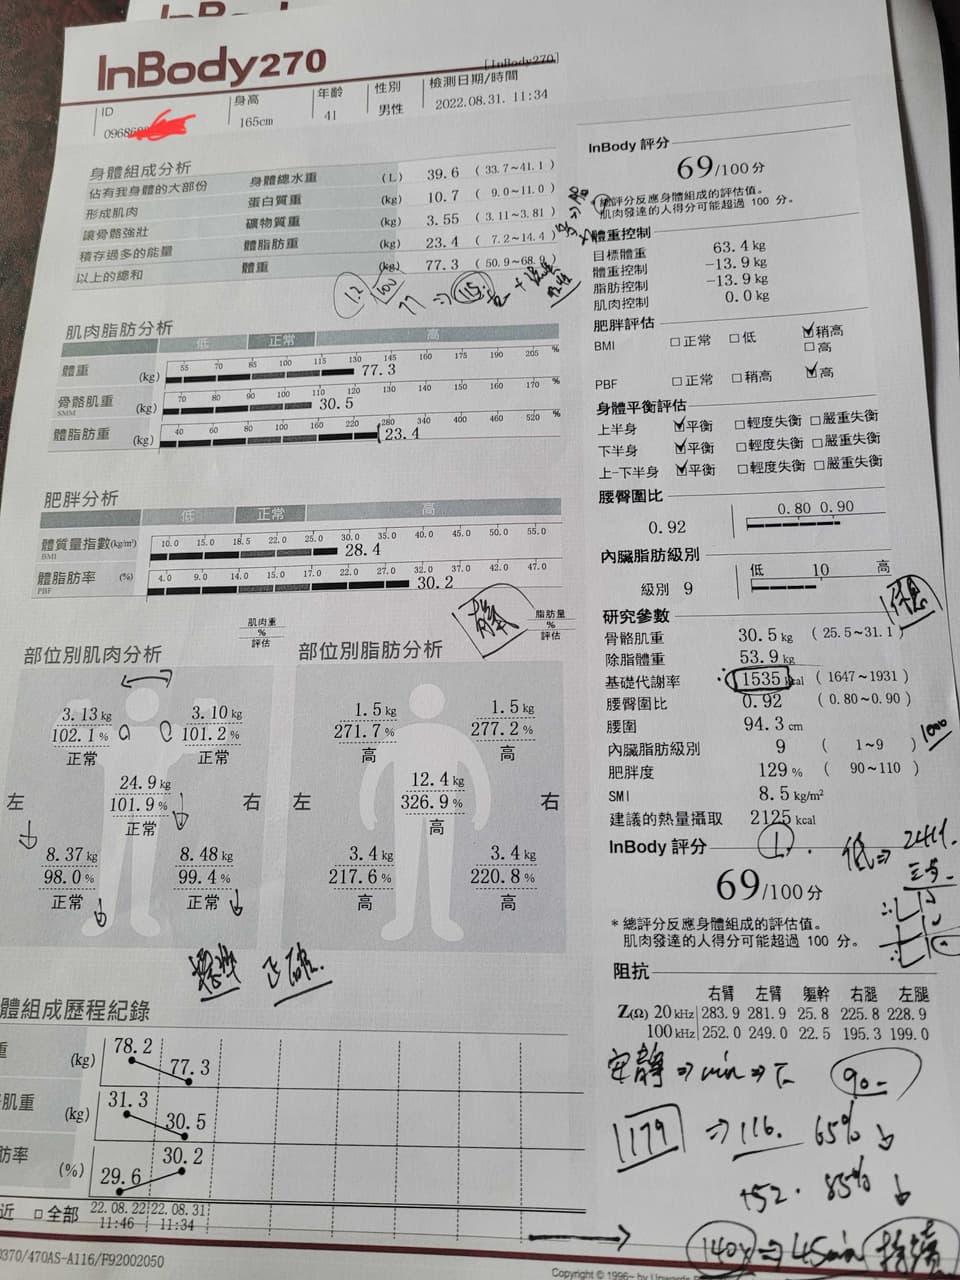 InBody270
[InBody270]
ID 身高 年齡 性別 檢測日期/時間
0968 165cm 41 男性 2022.08.31. 11:34
身體組成分析
佔有我身體的大部份 身體總水重 (L) 39.6 (33.7~41.1)
形成肌肉 蛋白質重 (kg) 10.7 (9.0~11.0)
讓骨骼強壯 礦物質重 (kg) 3.55 (3.11~3.81)
積存過多的能量 體脂肪重 (kg) 23.4 (7.2~14.4)
以上的總和 體重 (kg) 77.3 (50.9~68.9)
1.2 100 77 ⇒ 115
肌肉脂肪分析
低 正常 高
體重 (kg) 55 70 85 100 115 130 145 160 175 190 205 %
77.3
骨骼肌重 SMM (kg) 70 80 90 100 110 120 130 140 150 160 170 %
30.5
體脂肪重 (kg) 40 60 80 100 160 220 280 340 400 460 520 %
23.4
肥胖分析
低 正常 高
體質量指數(kg/m²) BMI 10.0 15.0 18.5 22.0 25.0 30.0 35.0 40.0 45.0 50.0 55.0
28.4
體脂肪率 (%) PBF 4.0 9.0 14.0 15.0 17.0 22.0 27.0 32.0 37.0 42.0 47.0
30.2
部位別肌肉分析
肌肉重
%
評估
3.13 kg 3.10 kg
102.1 % 101.2 %
正常 正常
24.9 kg
101.9 %
正常
左 右
8.37 kg 8.48 kg
98.0 % 99.4 %
正常 正常
部位別脂肪分析
脂肪量
%
評估
1.5 kg 1.5 kg
271.7 % 277.2 %
高 高
12.4 kg
326.9 %
高
左 右
3.4 kg 3.4 kg
217.6 % 220.8 %
高 高
正確
體組成歷程紀錄
重 (kg) 78.2 77.3
肌重 (kg) 31.3 30.5
肪率 (%) 29.6 30.2
近 □全部 22.08.22 22.08.31
11:46 11:34
0370/470AS-A116/F92002050
InBody 評分
69/100 分
總評分反應身體組成的評估值。
肌肉發達的人得分可能超過 100 分。
體重控制
目標體重 63.4 kg
體重控制 -13.9 kg
脂肪控制 -13.9 kg
肌肉控制 0.0 kg
肥胖評估
BMI □正常 □低 ☑稍高
□高
PBF □正常 □稍高 ☑高
身體平衡評估
上半身 ☑平衡 □輕度失衡 □嚴重失衡
下半身 ☑平衡 □輕度失衡 □嚴重失衡
上-下半身 ☑平衡 □輕度失衡 □嚴重失衡
腰臀圍比
0.92 0.80 0.90
內臟脂肪級別
級別 9 低 10 高
研究參數
骨骼肌重 30.5 kg (25.5~31.1)
除脂體重 53.9 kg
基礎代謝率 1535 kcal (1647~1931)
腰臀圍比 0.92 (0.80~0.90)
腰圍 94.3 cm
內臟脂肪級別 9 (1~9)
1000
肥胖度 129 % (90~110)
SMI 8.5 kg/m²
建議的熱量攝取 2125 kcal
InBody 評分
低⇒
69/100 分
* 總評分反應身體組成的評估值。
肌肉發達的人得分可能超過 100 分。
阻抗
右臂 左臂 軀幹 右腿 左腿
Z(Ω) 20 kHz 283.9 281.9 25.8 225.8 228.9
100 kHz 252.0 249.0 22.5 195.3 199.0
安靜 ⇒ min ⇒ 下 90
179 ⇒ 116. 65% ↓
+52. 85% ↓
140 ⇒ 45min 持續
Copyright © 1996~ by